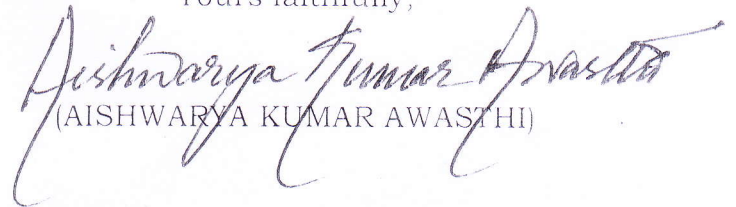 Yours faithfully,
Aishwarya Kumar Awasthi
(AISHWARYA KUMAR AWASTHI)